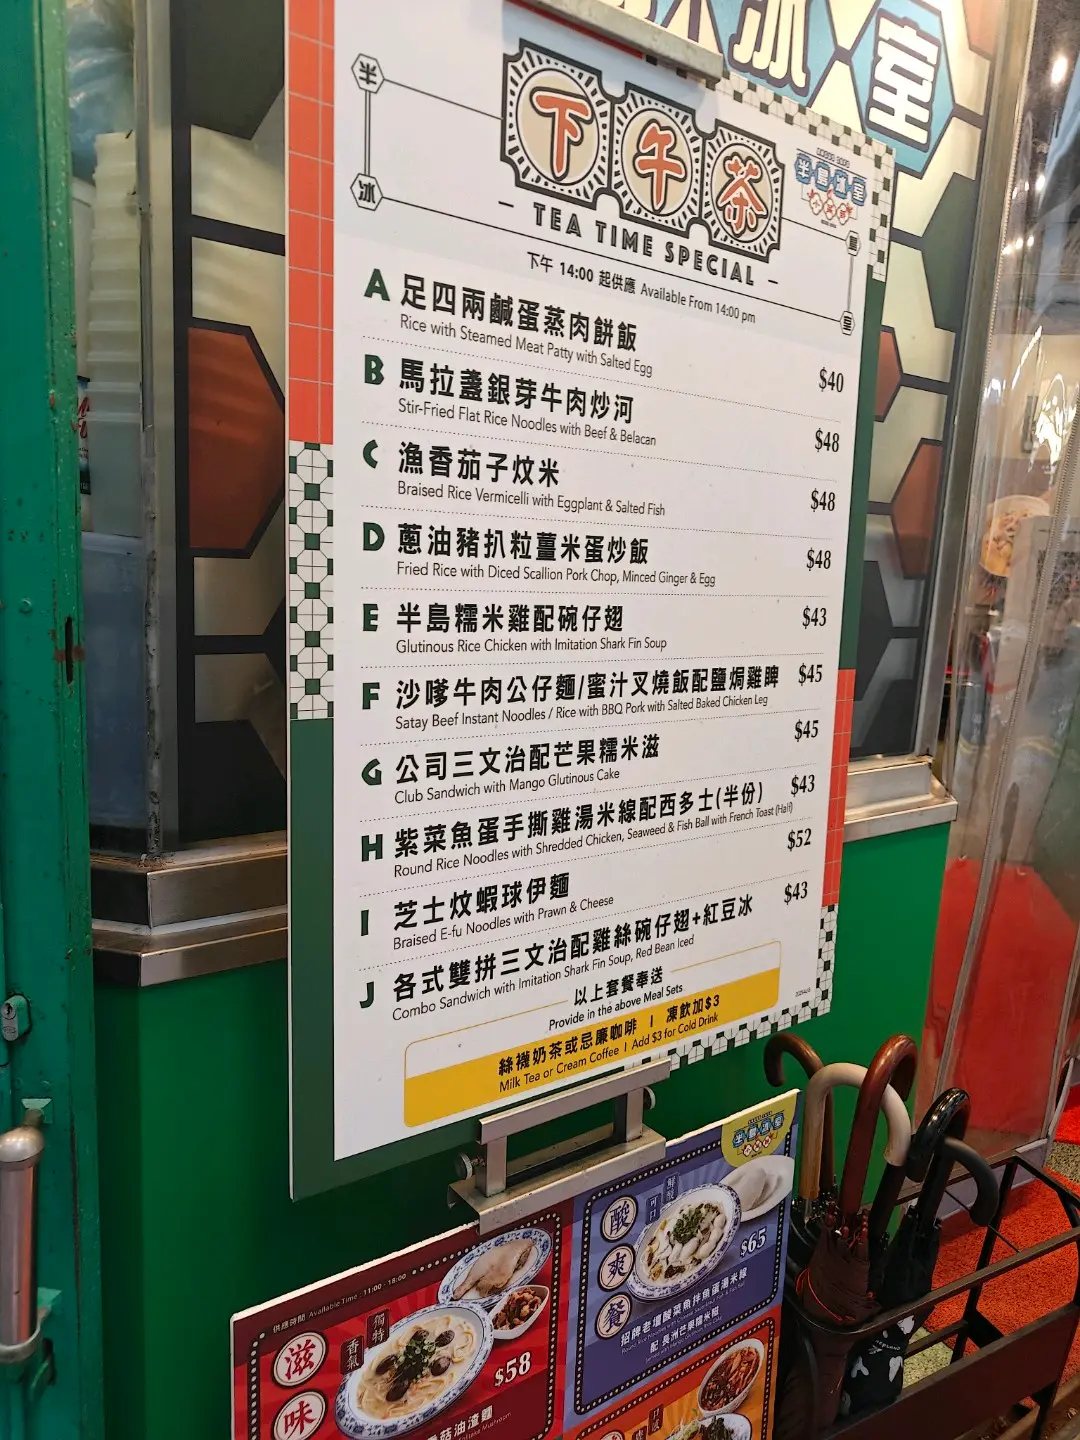 冰室
半
冰
下午茶
半島冰室
皇
室
— TEA TIME SPECIAL —
下午 14:00 起供應 Available From 14:00 pm
A 足四兩鹹蛋蒸肉餅飯
Rice with Steamed Meat Patty with Salted Egg
$40
B 馬拉盞銀芽牛肉炒河
Stir-Fried Flat Rice Noodles with Beef & Belacan
$48
C 漁香茄子炆米
Braised Rice Vermicelli with Eggplant & Salted Fish
$48
D 蔥油豬扒粒薑米蛋炒飯
Fried Rice with Diced Scallion Pork Chop, Minced Ginger & Egg
$48
E 半島糯米雞配碗仔翅
Glutinous Rice Chicken with Imitation Shark Fin Soup
$43
F 沙嗲牛肉公仔麵/蜜汁叉燒飯配鹽焗雞髀
Satay Beef Instant Noodles / Rice with BBQ Pork with Salted Baked Chicken Leg
$45
G 公司三文治配芒果糯米滋
Club Sandwich with Mango Glutinous Cake
$45
H 紫菜魚蛋手撕雞湯米線配西多士(半份)
Round Rice Noodles with Shredded Chicken, Seaweed & Fish Ball with French Toast (Half)
$43
I 芝士炆蝦球伊麵
Braised E-fu Noodles with Prawn & Cheese
$52
J 各式雙拼三文治配雞絲碗仔翅+紅豆冰
Combo Sandwich with Imitation Shark Fin Soup, Red Bean Iced
$43
以上套餐奉送
Provide in the above Meal Sets
絲襪奶茶或忌廉咖啡 | 凍飲加$3
Milk Tea or Cream Coffee | Add $3 for Cold Drink
供應時間 Available Time : 11:00 - 18:00
滋味
獨特
香氣
$58
菇油渣麵
半島冰室
酸爽餐
鮮製
可口
$65
招牌老壇酸菜魚拌魚蛋湯米線
配 長洲芒果糯米糍